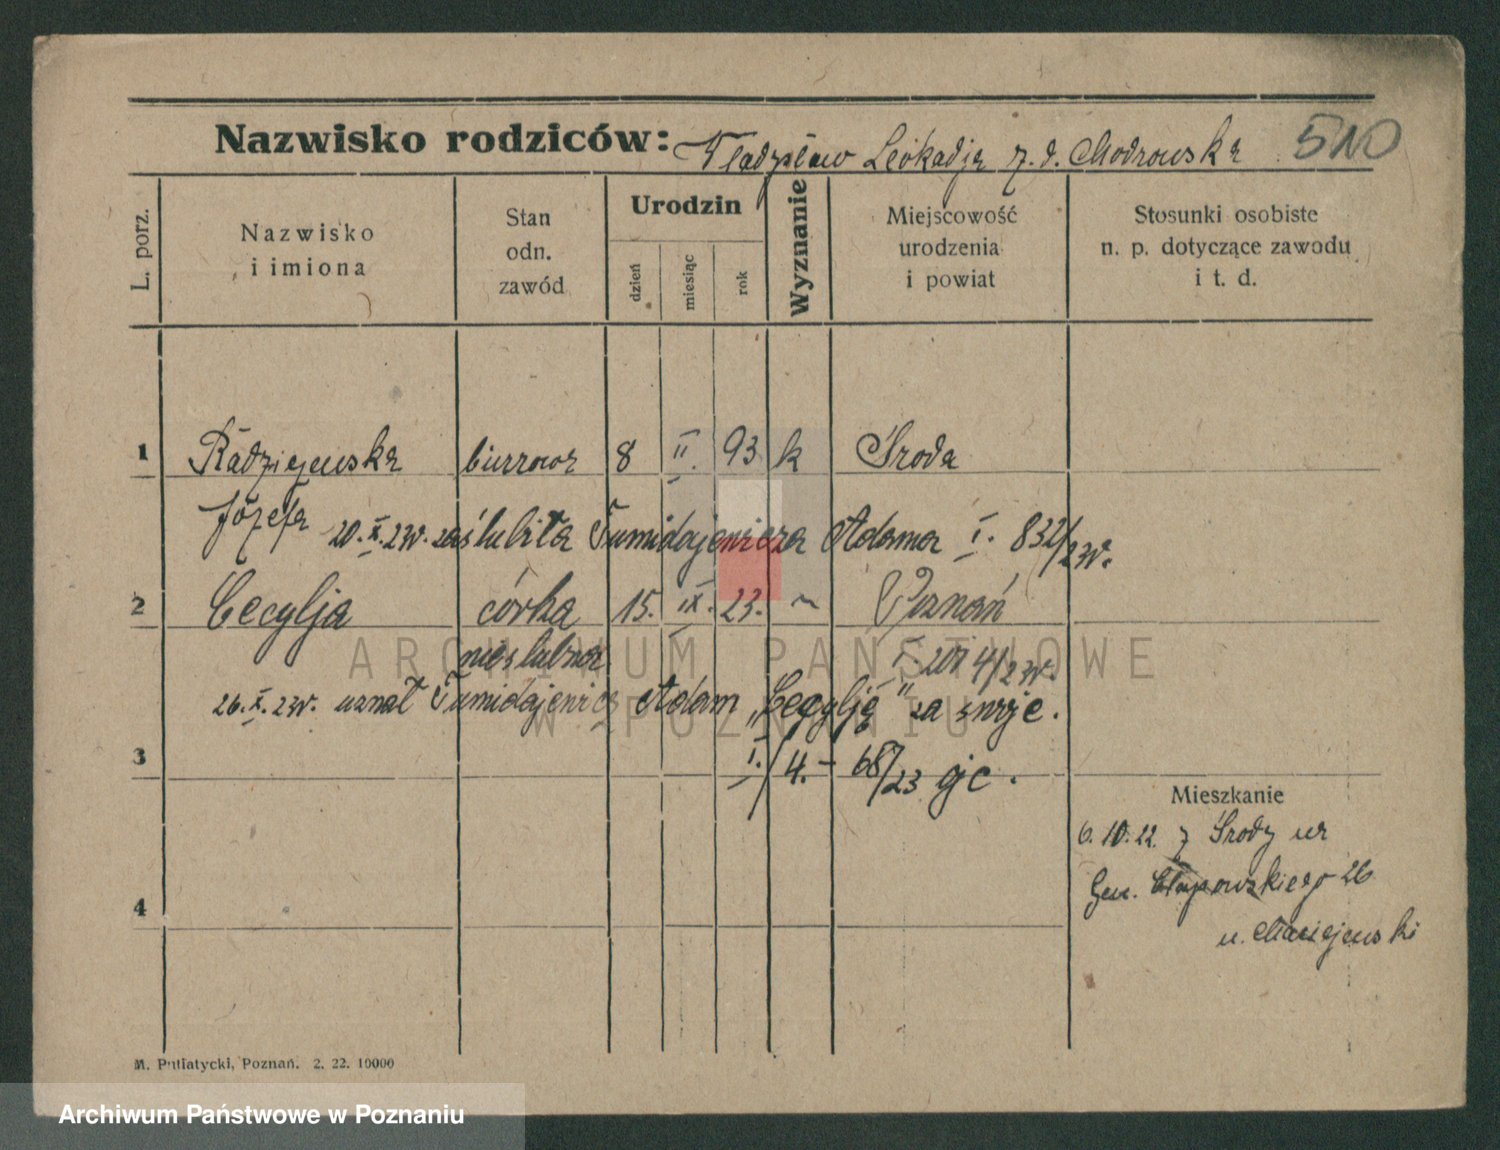 Nazwisko rodziców: Władysław Leokadja z. d. Modrowska 510
L. porz.
Nazwisko
i imiona
Stan
odn.
zawód
Urodzin
dzień
miesiąc
rok
Wyznanie
Miejscowość
urodzenia
i powiat
Stosunki osobiste
n. p. dotyczące zawodu
i t. d.
1 Radziejewska biurowa 8 II. 93 k Środa
Józefa 20. X. 23r. zaślubiła Tumidajewicza Adama I. 832/23r.
2 Cecylja córka 15. IX. 23. ~ Poznań
nieślubna I. 2014/23r.
26. X. 23r. uznał Tumidajewicz Adam „Cecylję" za swoje.
3 I./4. – 687/23 gjc.
Mieszkanie
6. 10. 22. z Środy ur
Gen. Chłapowskiego 26
u. Maciejewski
4
M. Putiatycki, Poznań. 2. 22. 10000
ARCHIWUM PAŃSTWOWE
W POZNANIU
Archiwum Państwowe w Poznaniu